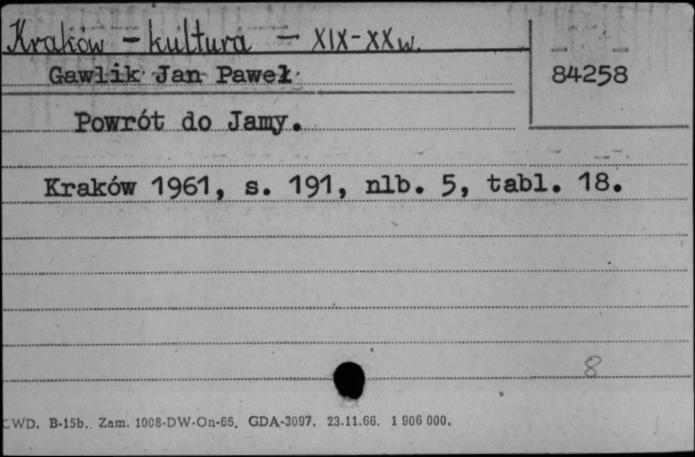 Kraków - kultura - XIX-XX w.
Gawlik Jan Paweł
84258
Powrót do Jamy.
Kraków 1961, s. 191, nlb. 5, tabl. 18.
8
CWD. B-15b. Zam. 1008-DW-On-66. GDA-3097. 23.11.66. 1 906 000.